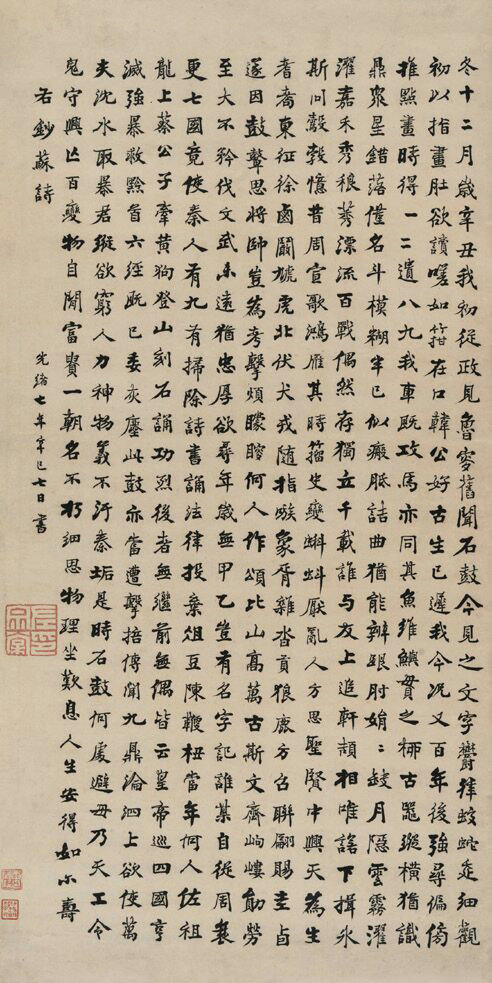 冬十二月歲辛丑我初從政見魯叟舊聞石鼓今見之文字鬱律蛟蛇走細觀
初以指畫肚欲讀嗟如箝在口韓公好古生已遲我今況又百年後強尋偏傍
推點畫時得一二遺八九我車既攻馬亦同其魚維鱮貫之柳古器縱橫猶識
鼎眾星錯落僅名斗模糊半已似瘢胝詰曲猶能辨跟肘娟〻缺月隱雲霧濯
濯嘉禾秀稂莠漂流百戰偶然存獨立千載誰与友上追軒頡相唯諾下揖冰
斯同鷇憶昔周宣歌鴻雁其時籀史變蝌蚪厭亂人方思聖賢中興天為生
耆耇東征徐虜闞虓虎北伏犬戎隨指嗾象胥雜沓貢狼鹿方召聯翩賜圭卣
遂因鼓鼙思將帥豈為考擊煩矇瞍何人作頌比山高萬古斯文齊岣嶁勛勞
至大不矜伐文武未遠猶忠厚欲尋年歲無甲乙豈有名字記誰某自從周衰
更七國竟使秦人有九有掃除詩書誦法律投棄俎豆陳鞭杻當年何人佐祖
龍上蔡公子牽黃狗登山刻石誦功烈後者無繼前無偶皆云皇帝巡四國烹
滅強暴救黔首六經既已委灰塵此鼓亦當遭擊掊傳聞九鼎淪泗上欲使萬
夫沈水取暴君縱欲窮人力神物義不汙秦垢是時石鼓何處避毋乃天工令
鬼守興亡百變物自閒富貴一朝名不朽細思物理坐歎息人生安得如尒壽
右鈔蘇詩
光緒七年辛巳七日書